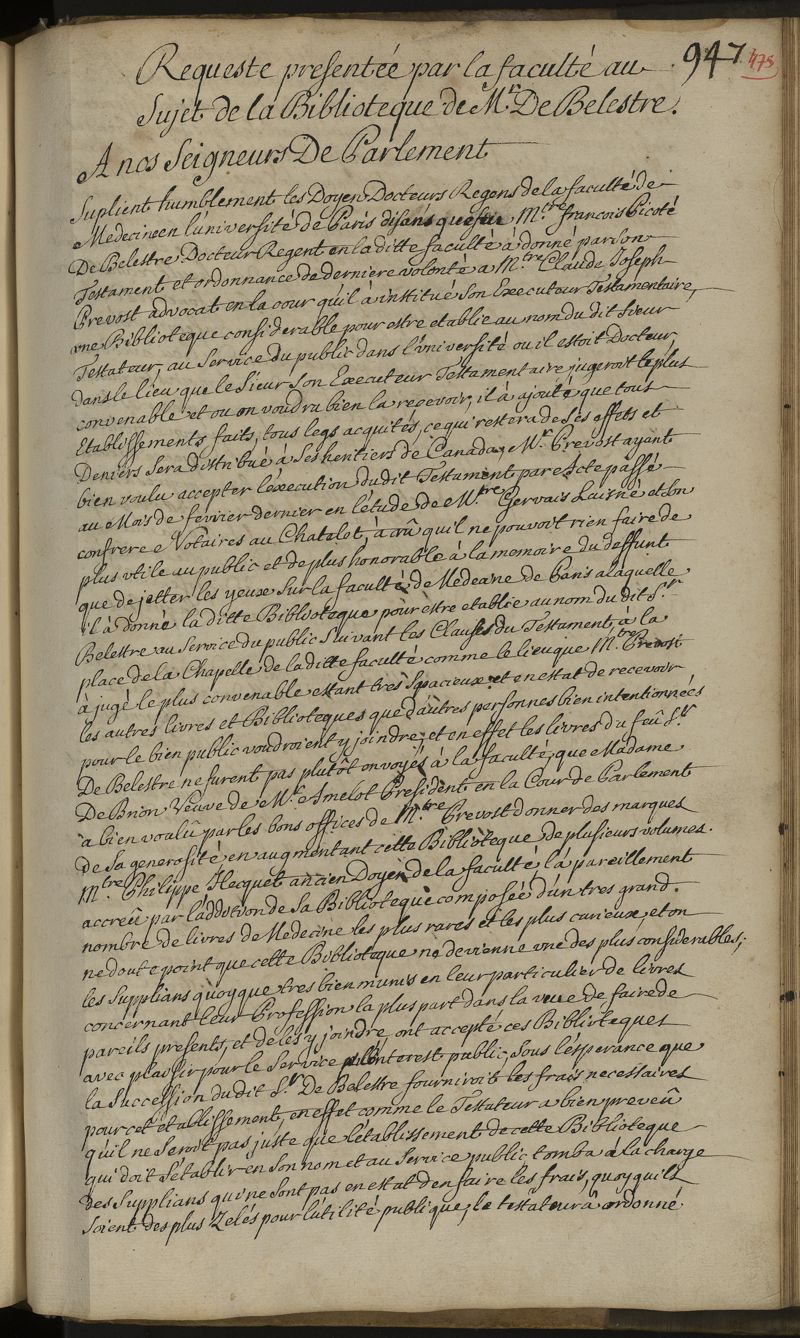 947
475
Requeste presentée par la faculté au
Sujet de la Biblioteque de Mr. De Belestre.
A nos Seigneurs De Parlement
Suplient humblement les Doyen Docteurs Regens de la faculté de
Medecine en l'université de Paris disans que feu Mtre. francois Picoté
De Belestre Docteur Regent en la ditte faculté à donné par son
Testament et ordonnance de derniere volonté a Mtre. Claude Joseph
Prevost advocat en la cour qu'il à institué Son Executeur Testamentaire,
une Biblioteque considerable pour estre etablie au nom du dit Sieur
Testateur, au Service du public dans l'université ou il estoit Docteur
dans le lieu que le Sieur Son Executeur Testamentaire jugeroit le plus
convenable et ou on voudra bien la recevoir, il à ajouté que tous
Etablissements faits, tous legs acquités, ce qui restera de Ses effets et
Deniers Sera distribué a Ses heritiers de Canada, Mr. Prevost ayant
bien voulu accepter l'éxecution du dit Testament par Acte passé
au Mois de fevrier dernier en l'étude de Mtre. Gervais Laisné et Son
confrere Notaires au Chatelet, à crû qu'il ne pouvoit rien faire de
plus utile au public et de plus honorable à la memoire du deffunt
que de jetter les yeux Sur la faculté de Medecine de Paris a laquelle
il à donné la ditte Biblioteque pour estre etablie au nom du dit Sr.
Belestre au Service du public Suivant les Clauses du Testament, à la
place de la Chapelle de la ditte faculté comme le lieu que Mtre. Prevost
à jugé le plus convenable estant tres Spacieux et en estat de recevoir
les autres livres et Biblioteques que d'autres personnes bien intentionnées
pour le bien public voudroient y joindre, et en effet les livres du feû Sr.
De Belestre ne furent pas plutôt envoyés à la faculté, que Madame
De Brion Veuve de Mr. Amelot President en la Cour de Parlement
a bien voulû par les bons offices de Mtre. Prevost donner des marques
de Sa generosité en augmentant cette Biblioteque de plusieurs volumes.
Mtre. Philippe Hecquet ancien Doyen de la faculté l'à pareillement
accreü par l'addition de Sa Biblioteque composée d'un tres grand
nombre de livres de Medecine les plus rares et les plus curieux, et on
ne doute point que cette Biblioteque ne devienne une des plus considerables;
les Supplians quoyque tres bien munis en leur particulier de livres
concernant leur Profession la plus part dans la vue de faire de
pareils presents, et de les y joindre, ont accepté ces Biblioteques
avec plaisir pour le Service et l'interest public, Sous l'esperance que
la Succession du dit Sr. De Belestre fourniroit les frais necessaires
pour cet établissement, en effet comme le Testateur a bien preveû
qu'il ne Seroit pas juste que l'établissement de cette Biblioteque
qui doit S'établir en Son nom et au Service public, tomba à la charge
des Supplians qui ne Sont pas en estat d'en faire les frais, quoy qu'ils
Soient des plus Zelés pour l'utilité publique, le testateur à ordonné